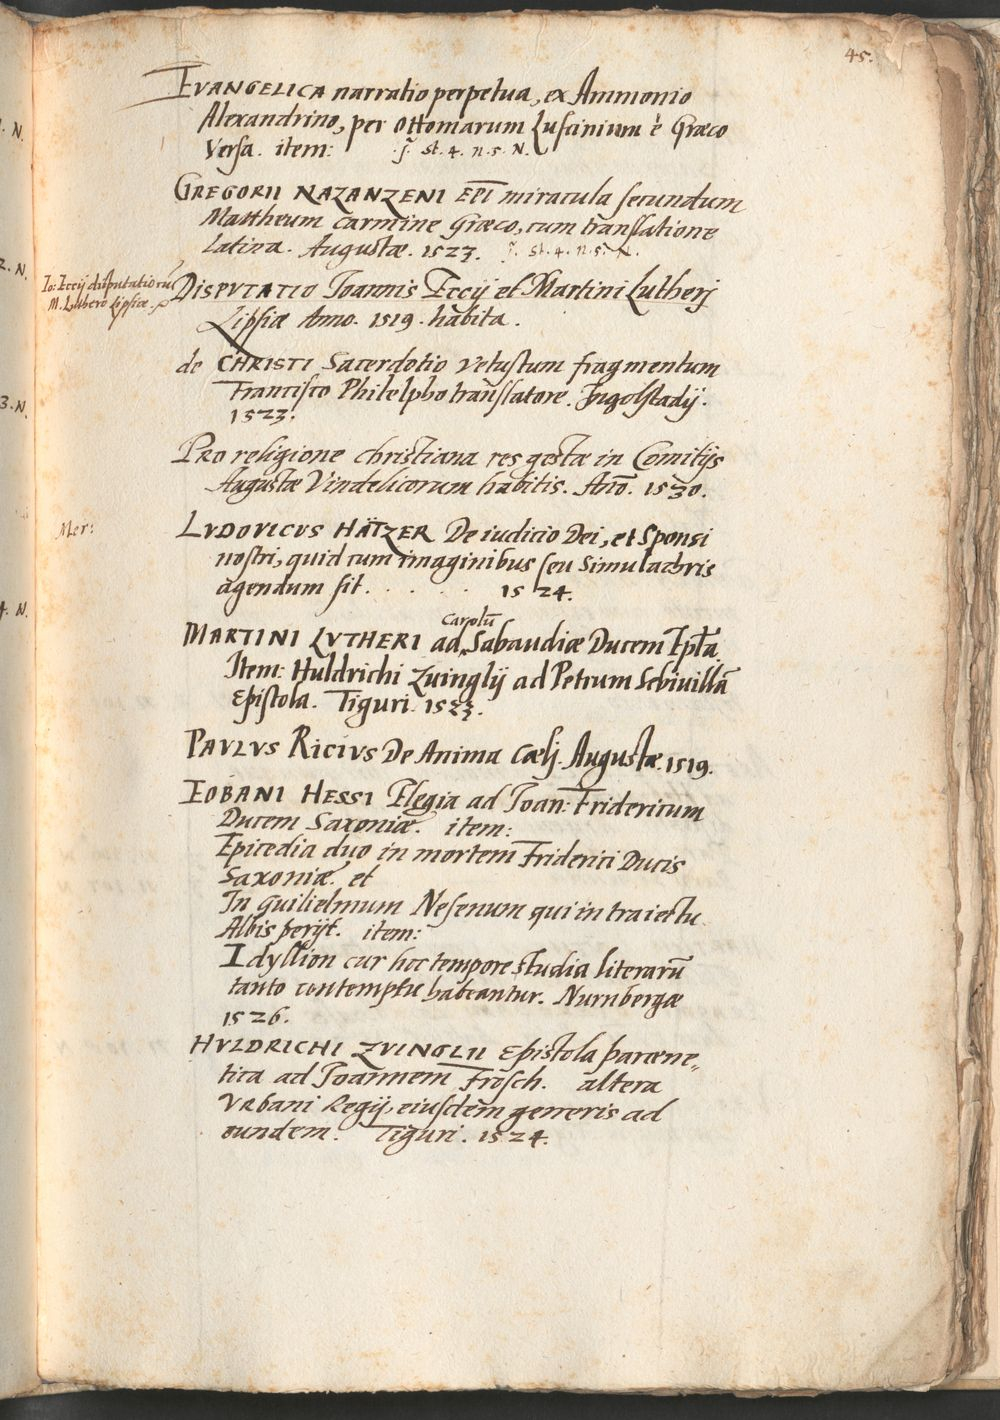 45.
EVANGELICA narratio perpetua, ex Ammonio
Alexandrino, per Ottomarum Luscinium è Græco
Versa. item: st. 4. n. 5. N.
GREGORII NAZANZENI EPĪ miracula secundum
Mattheum carmine Græco, cum translatione
Latina. Augustæ. 1523. st. 4. n. 5. N.
Io: Eccij disputatio cū
M. Luthero Lipsiæ.
DISPVTATIO Joannis Eccij et Martini Lutherj
Lipsiæ Anno. 1519. habita.
de CHRISTI Sacerdotio vetustum fragmentum
Francisco Philelpho translatore. Ingolstadij.
1523.
PRO religione christiana res gestæ in Comitijs
Augustæ Vindelicorum habitis. Anō. 1530.
Mer:
LVDOVICVS HÄTZER De iudicio Dei, et Sponsi
nostri, quid cum imaginibus seu simulachris
agendum sit. . . . . . 1524.
MARTINI LVTHERI ad Carolū Sabaudiæ Ducem Epl̄a
Item: Huldrichi Zuinglij ad Petrum Sebivillā
Epistola. Tiguri. 1523.
PAVLVS RICIVS De Anima Cælj. Augustæ. 1519.
EOBANI HESSI Elegia ad Joan: Fridericum
Ducem Saxoniæ. item:
Epicedia duo in mortem Friderici Ducis
Saxoniæ. et
In Guilielmum Nesenum qui in traiectu
Albis perijt. item:
Idyllion cur hoc tempore studia literarū
tanto contemptu habeantur. Nurnbergæ
1526.
HVLDRICHI ZVINGLII Epistola paræne„
tica ad Joannem Frosch. altera
Vrbani Regij, eiusdem generis ad
eundem. Tiguri. 1524.